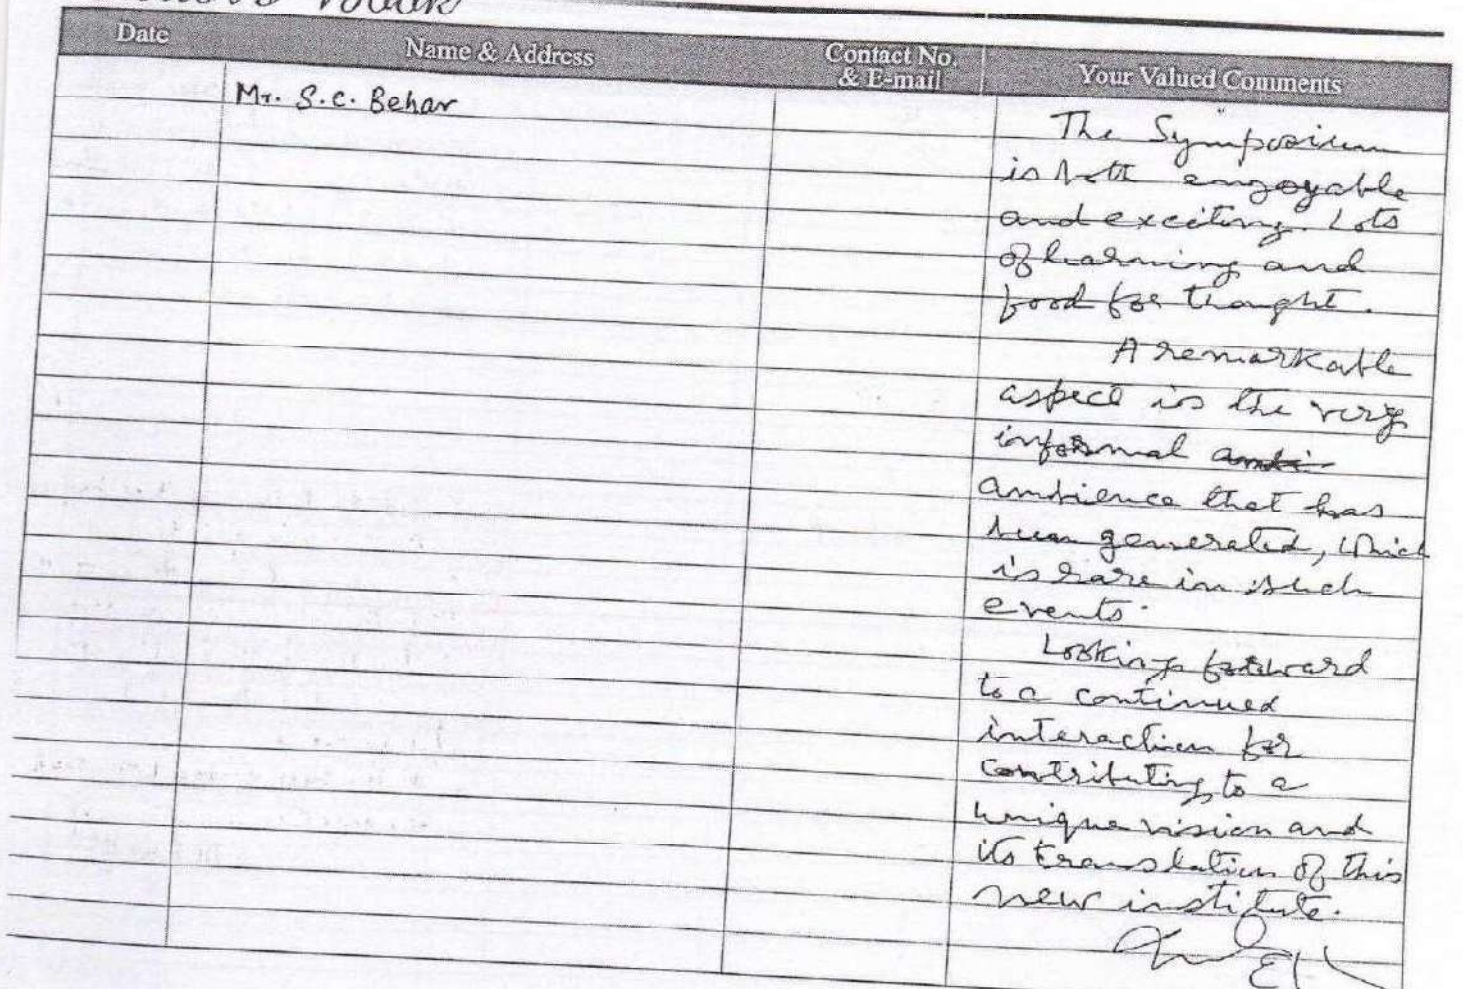 Book
Date
Name & Address
Contact No.
& E-mail
Your Valued Comments
Mr. S.C. Behar
The Symposium
is both engoyable
and exciting. Lots
of learning and
food for thought.
A remarkable
aspect is the very
informal ambi-
ambience that has
been generated, which
is rare in such
events.
Looking forward
to a continued
interaction for
contributing to a
unique vision and
its translation of this
new institute.